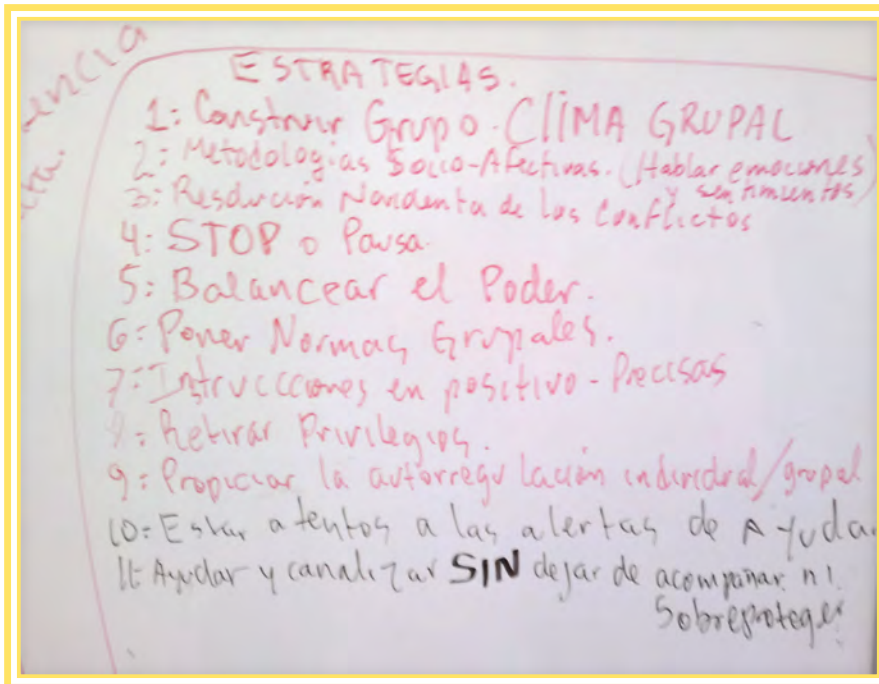 encia
ta.
ESTRATEGIAS.
1: Construir Grupo. CLIMA GRUPAL
2: Metodologías Socio-Afectivas. (Hablar emociones
y sentimientos)
3: Resolución Noviolenta de los Conflictos
4: STOP o Pausa.
5: Balancear el Poder.
6: Poner Normas Grupales.
7: Intrucciones en positivo - Precisas
8: Retirar Privilegios.
9: Propiciar la autorregulación individual/grupal
10: Estar atentos a las alertas de Ayuda.
11: Ayudar y canalizar SIN dejar de acompañar ni
Sobreproteger